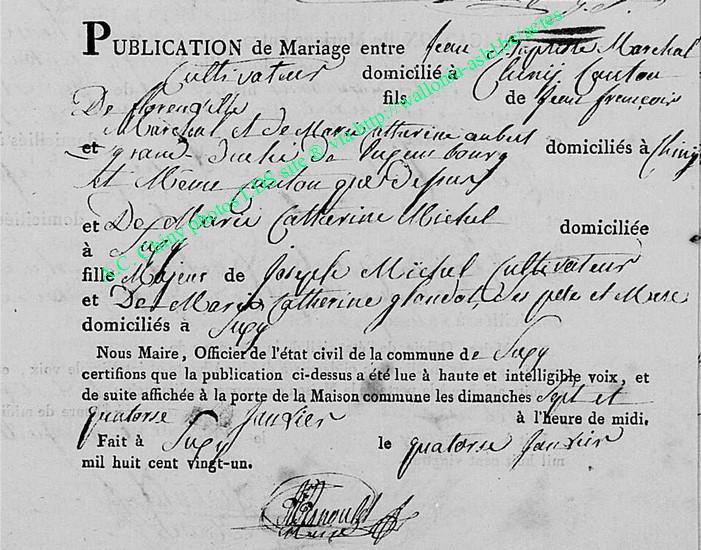 PUBLICATION de Mariage entre jean Baptiste Marechal
Cultivateur domicilié à Chiny Canton
De florenville fils de jean francois
Marechal et de Marie Catherine aubert
et grand Duché de Luxembourg domiciliés à Chiny
et Même Canton que Dessus
et De Marie Catherine Michel domiciliée
à Sugy
fille Majeur de Joseph Michel Cultivateur
et De Marie Catherine glaudot, des pere et Mere
domiciliés à Sugy
Nous Maire, Officier de l'état civil de la commune de Sugy
certifions que la publication ci-dessus a été lue à haute et intelligible voix, et
de suite affichée à la porte de la Maison commune les dimanches sept et
quatorse janvier à l'heure de midi.
Fait à Sugy le quatorse janvier
mil huit cent vingt-un.
Maire
A.C. Chiny photos LDS site ® via http://wallonia-asbl.be/actes